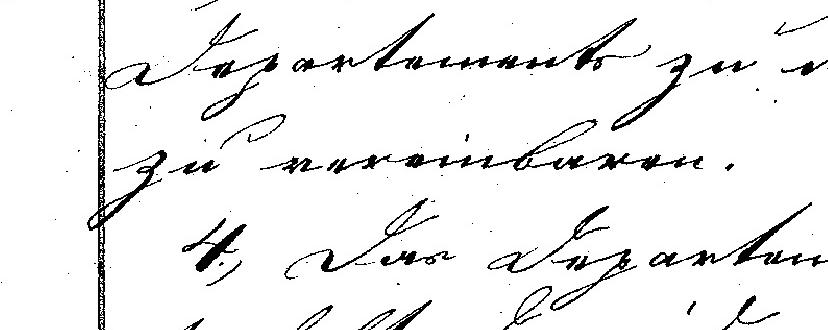 Departements zu
zu vereinbaren.
4., Das Departem